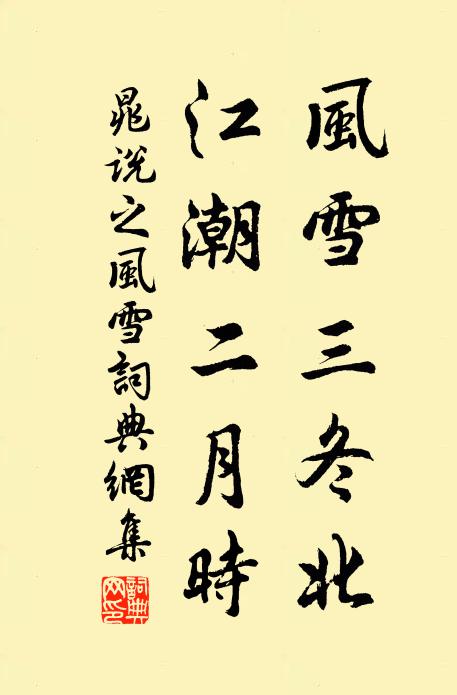 風雪三冬北
江潮二月時
晁說之風雪詞典網集
詞典
网印